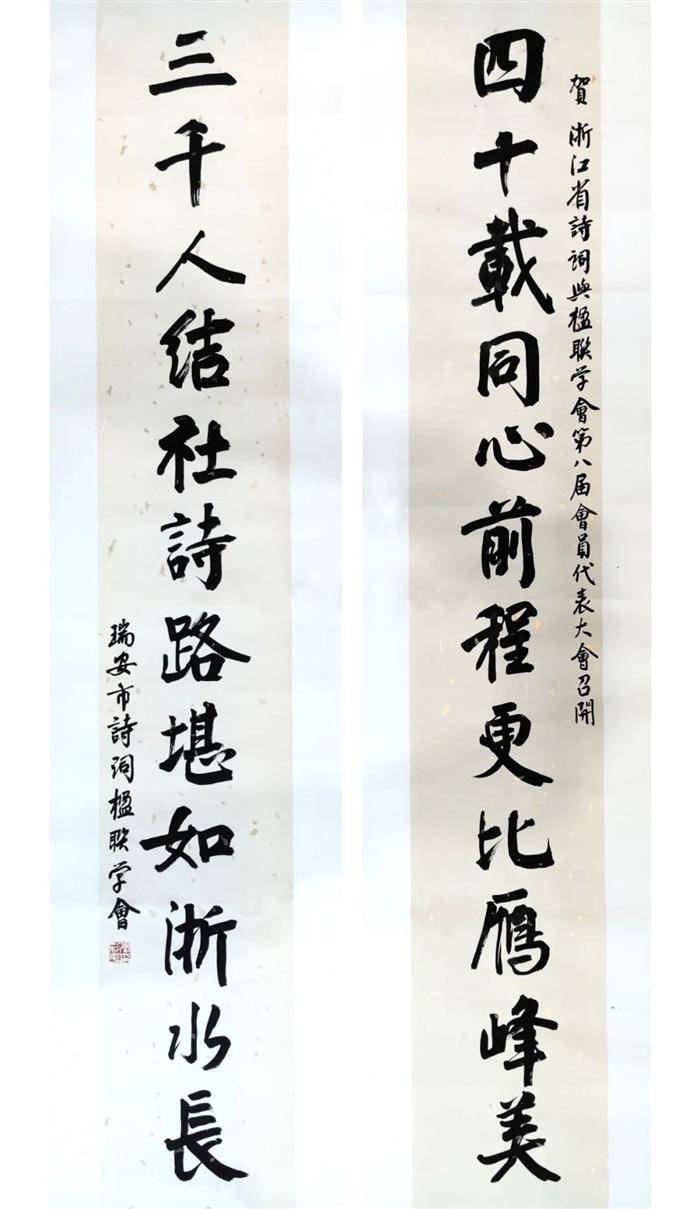 賀 浙江省詩詞與楹聯学會第八届會員代表大會召開
四十載同心前程更比鴈峰美
三千人结社詩路堪如浙水長
瑞安市詩詞楹聯学會